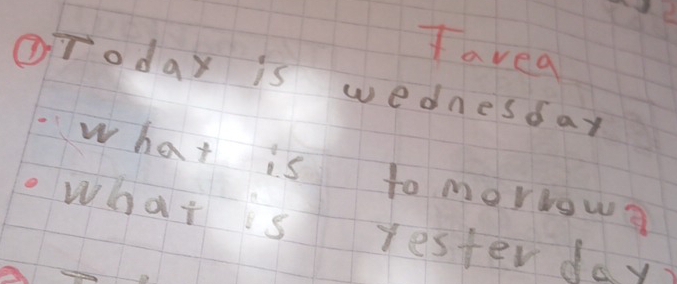 Tarea
① Today is wednesday
• What is tomorrow?
• What is yesterday?